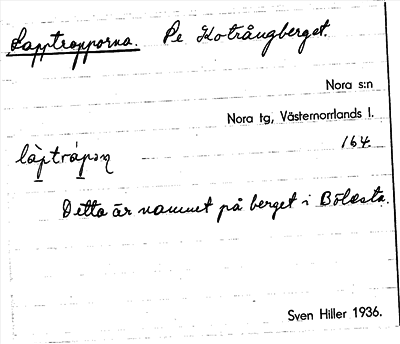 Lapptrapporna. På Kotrångberget.
Nora s:n
Nora tg, Västernorrlands l.
164
Detta är namnet på berget i Bölesta.
Sven Hiller 1936.